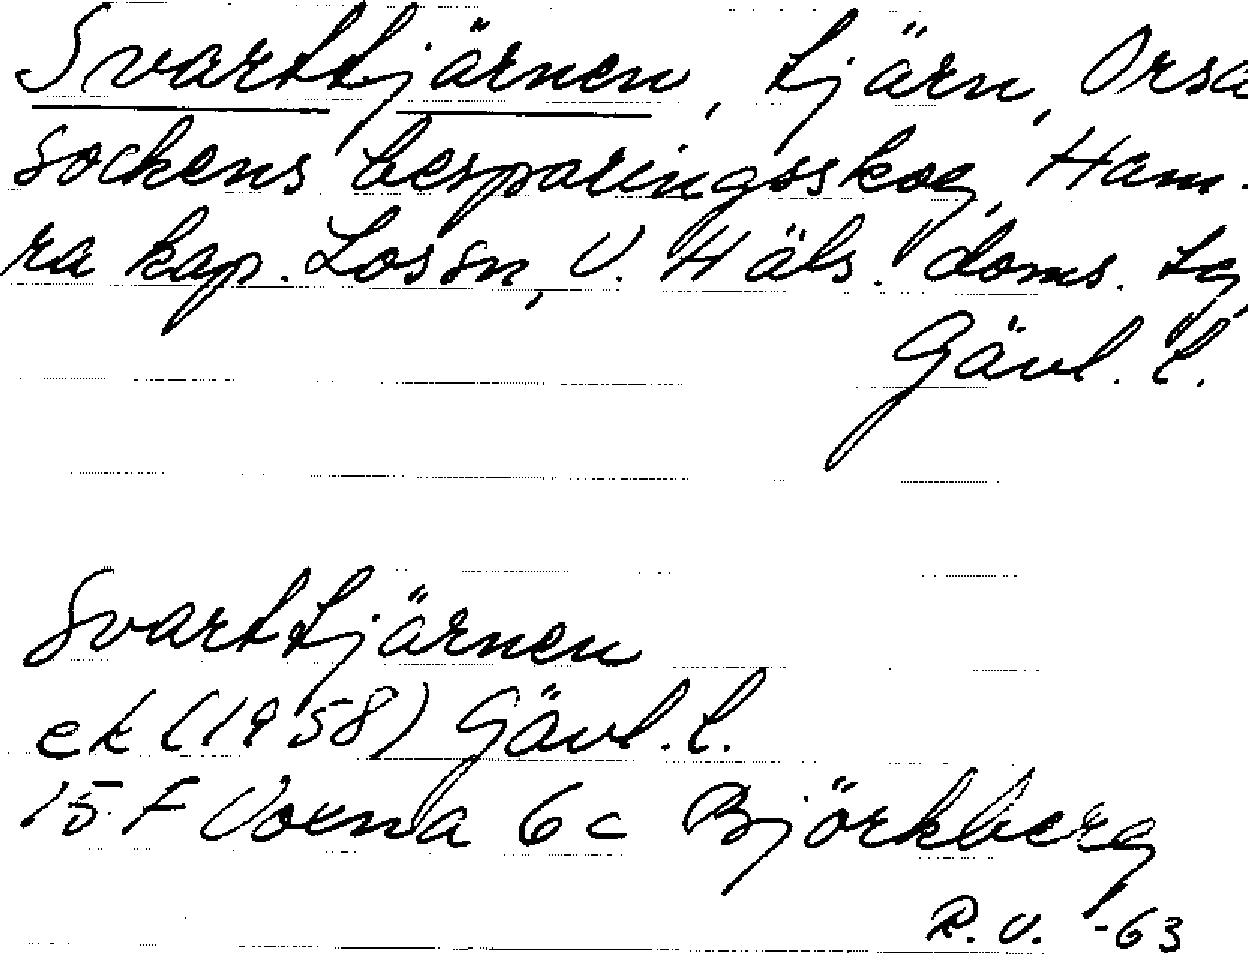 Svarttjärnen, tjärn, Orsa
sockens besparingsskog, Ham-
ra kap. Lossn, V. Häls. doms. tg,
Gävl. l.
Svarttjärnen
ek (1958) Gävl. l.
15 F Voxna 6c Björkberg
R.V. -63